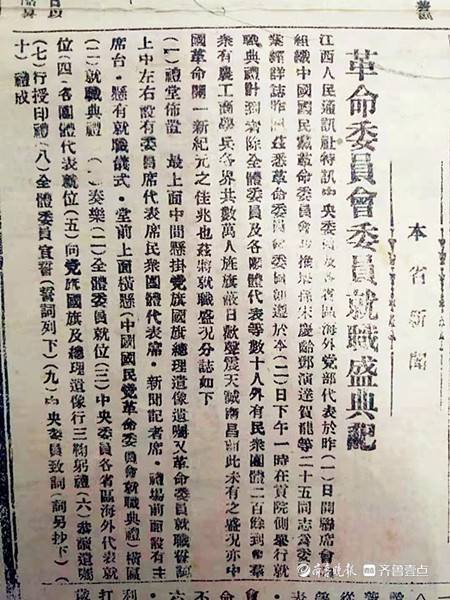 本省新聞
革命委員會委員就職盛典記
江西人民通訊社特訊中央委員及各省區海外党部代表於昨(一)日開聯席會議
組織中國國民党革命委員會并推舉宋慶齡鄧演達賀龍等二十五同志爲委員
業經詳誌昨報茲悉革命委員會委員卽遵於本(二)日下午一時在貢院側舉行就
職典禮計到者除全體委員及各團體代表等數十人外有民衆團體二百餘到會羣
衆有農工商學兵各界共數萬人旌旗蔽日歡聲震天誠南昌新此未有之盛況亦中
國革命開一新紀元之佳兆也茲將就職盛況分誌如下
(一)禮堂佈置 最上面中間懸掛党旗國旗總理遺像遺囑又革命委員就職誓詞
上中左右設有委員席代表席民衆團體代表席·新聞記者席·禮場前面設有主
席台·懸有就職儀式·堂前上面橫懸(中國國民党革命委員會就職典禮)橫匾
(二)就職典禮 (一)奏樂(二)全體委員就位(三)中央委員各省區海外代表就
位(四)各團體代表就位(五)向党旗國旗及總理遺像行三鞠躬禮(六)恭讀遺囑
(七)行授印禮(八)全體委員宣誓(誓詞列下)(九)中央委員致詞(詞另抄下)(
十)禮成
齊魯晚报·齐鲁壹点